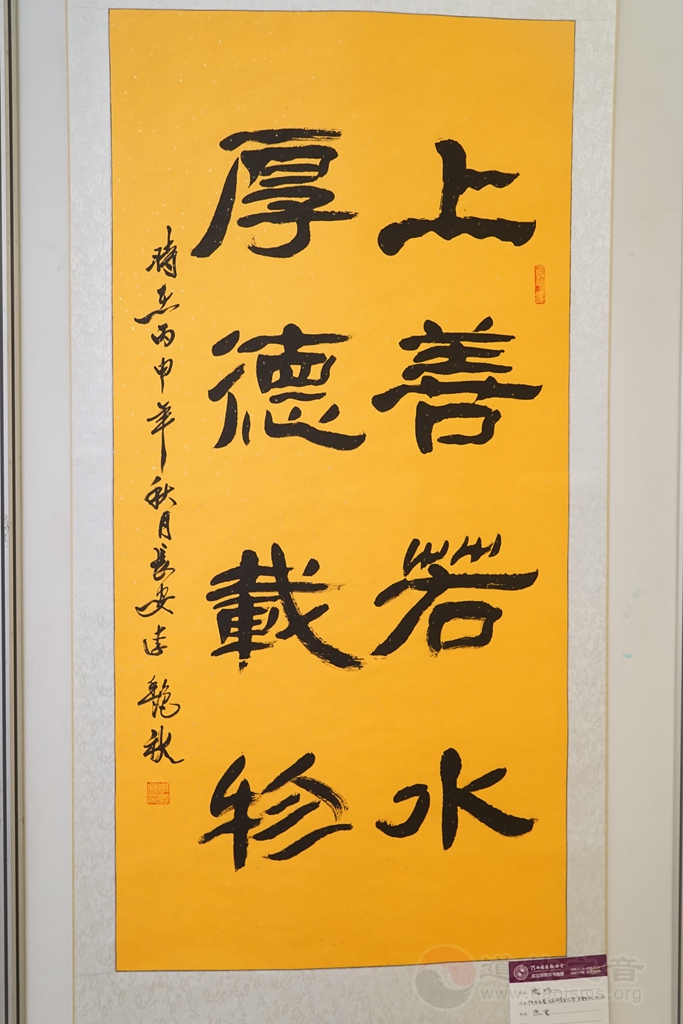 上善若水
厚德載物
時在丙申年秋月長安李 秋
道教之音
www.daoisms.org